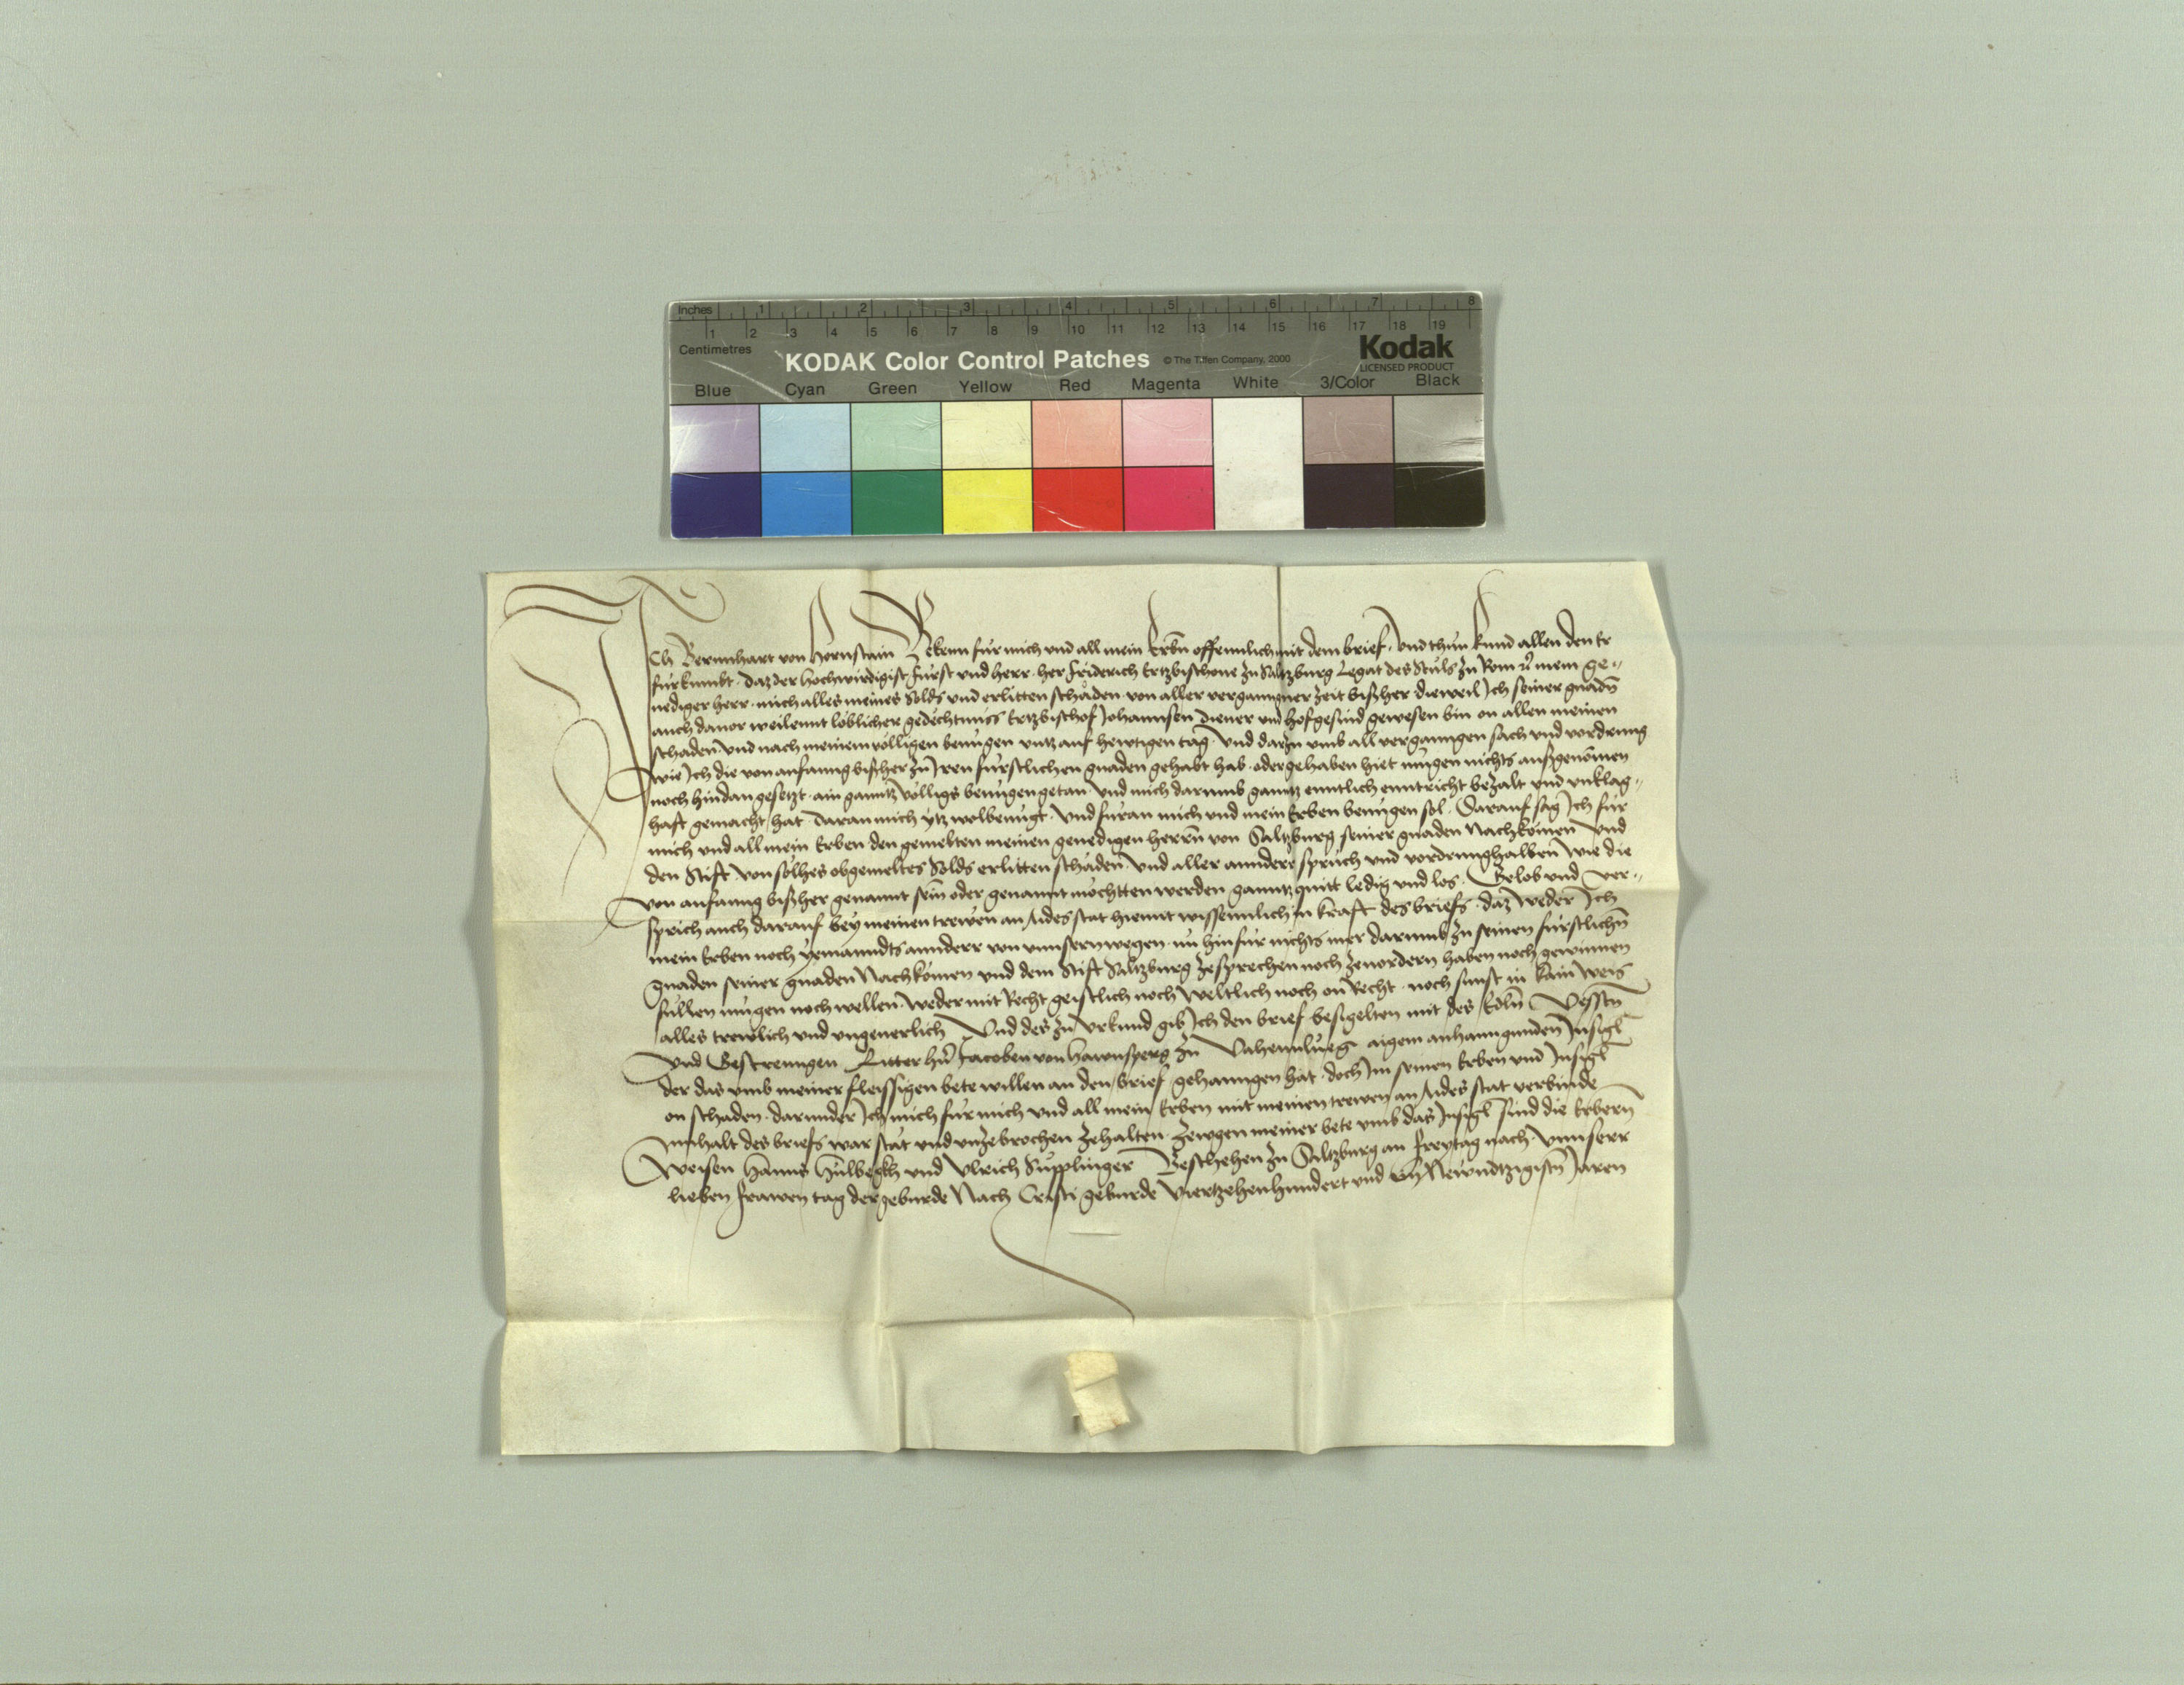 Inches 1 2 3 4 5 6 7 8
1 2 3 4 5 6 7 8 9 10 11 12 13 14 15 16 17 18 19
Centimetres
KODAK Color Control Patches © The Tiffen Company, 2000 Kodak
LICENSED PRODUCT
Blue Cyan Green Yellow Red Magenta White 3/Color Black
Ich Bernnhart von Hornstain Bekenn für mich und all mein Erbñ offennlich mit dem brief, Und thun kund allen den Er
fürkumbt. daz der Hochwirdigist Fürst und herr. her Friderich Ertzbischoue zu Saltzburg Legat des Stuls zu Rom mein ge-
nediger herr. mich alles meines Solds und erlitten schäden von aller verganngner zeit bißher dieweil Ich seiner gnadñ
auch dauor weilennt löblicher gedechtnuss Ertzbischof Johannsen diener und hofgesind gewesen bin on allen meinen
schaden und nach meinem völligen benügen untz auf hewtigen tag. Und darzu umb all verganngen sach und vordrung
wie Ich die von anfanng bißher zu Iren fürstlichen gnaden gehabt hab. oder gehaben hiet mügen nichts außgenomen
noch hindangesetzt. ain ganntz völligs benügen getan. und mich darumb ganntz enntlich enntricht bezalt und unklag-
haft gemacht hat daran mich ytz wolbenügt. Und füran mich und mein Erben benügen sol. Darauf sag Ich für
mich und all mein Erben den gemelten meinen genedigen herrñ von Saltzburg seiner gnaden Nachkomen Und
den Stift. von solhes obgemeltes Solds erlitten schäden und aller annderr sprüch und vordrunghalben wie die
von anfanng bißher genannt sein oder genannt möchtten werden ganntz quitt ledig und los. Gelob und ver-
sprich auch darauf bey meinen trewen an Aides stat hiemit wissennlich in kraft des briefs. daz weder Ich
mein Erben noch yemanndts annderr von unnsern wegen. nu hinfür nichts mer darumb zu seinen fürstlichñ
gnaden seiner gnaden Nachkomen und dem Stift Saltzburg zesprechen noch zeuordern haben noch gewinnen
süllen mügen noch wellen. weder mit Recht geistlich noch weltlich noch on Recht. noch sunst in kain weis
alles trewlich und ungeuerlich Und des zu Urkund gib Ich den brief besigelten mit des Edln Vesstñ
und Gestrenngen Ritter hñ Jacoben von Hawnsperg zu Vahennlueg aigem anhanngunden Insigl
der das umb meiner fleissigen bete willen an den brief gehanngen hat. doch Im seinen Erben und Insigl
on schaden. darunder Ich mich für mich und all mein Erben mit meinen trewen an Aides stat verbinde
Innhalt des briefs war stät und unzebrochen zehalten. Zewgen meiner bete umb das Insigl sind die Erbern
Weisen Hanns Hülbegkh und Ulrich Supplinger Beschehen zu Saltzburg an freytag nach unnserr
lieben frawen tag der geburde Nach Cristi geburde Viertzehenhundert und Im Newndtzigistñ Jaren